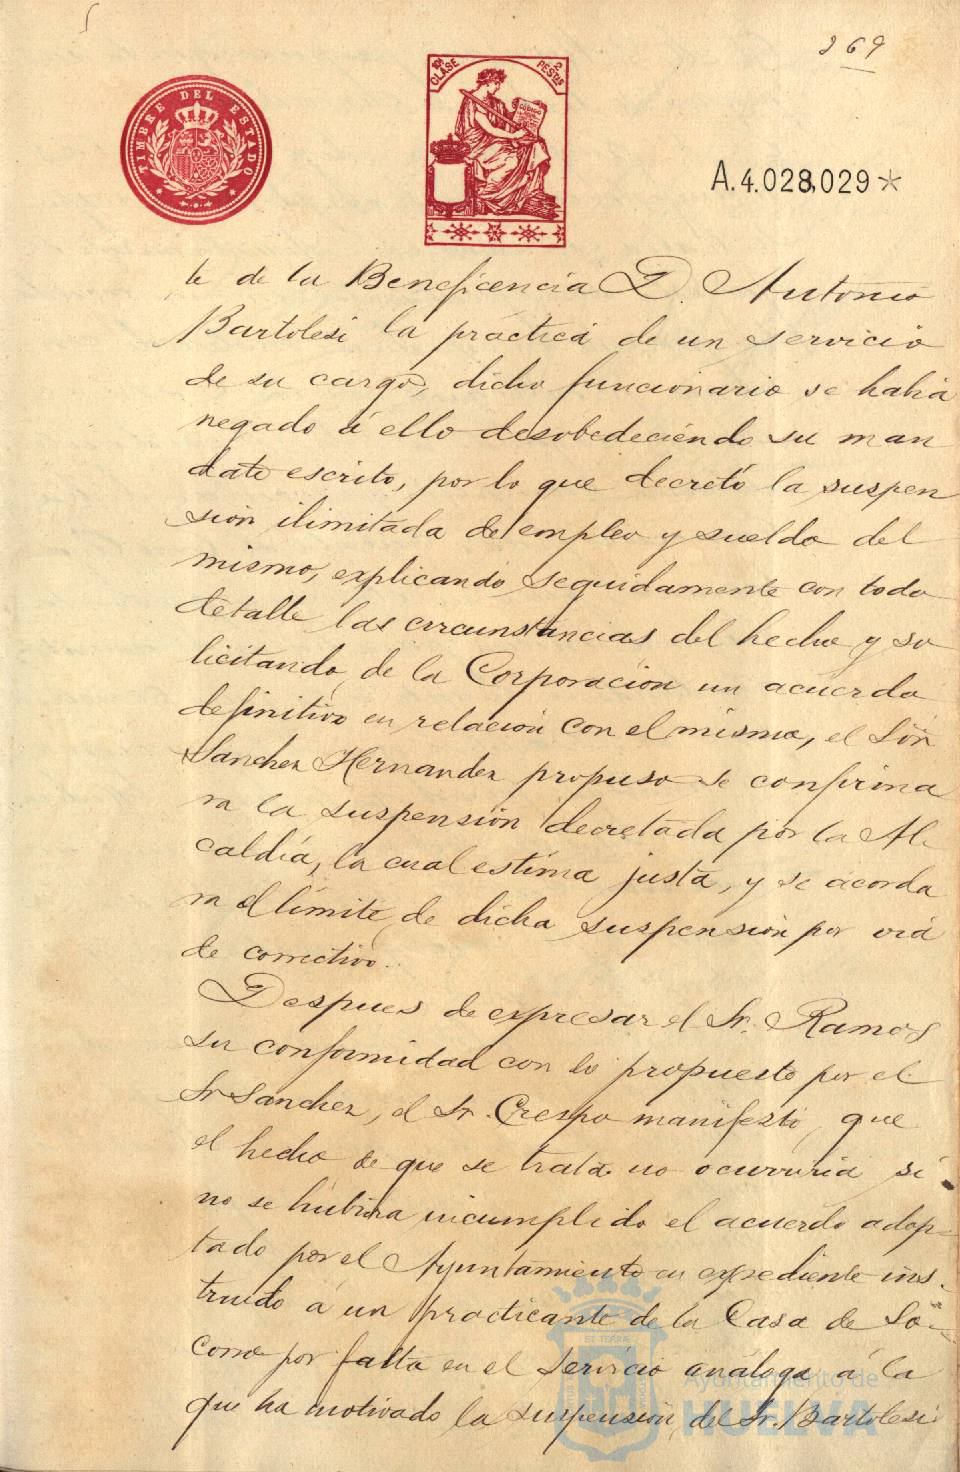 269
TIMBRE DEL ESTADO
10ª CLASE
2 PESTAS
CÓDIGO
A.4.028,029*
te de la Beneficencia D. Antonio
Bartolesi la práctica de un servicio
de su cargo, dicho funcionario se había
negado á ello desobedeciendo su man
dato escrito, por lo que decretó la suspen
sión ilimitada de empleo y sueldo del
mismo, explicando seguidamente con todo
detalle las circunstancias del hecho y so
licitando de la Corporación un acuerdo
definitivo en relación con el mismo, el Sôr
Sanchez Hernandez propuso se confirma
ra la suspensión decretada por la Al
caldía, la cual estima justa, y se acorda
ra el límite de dicha suspensión por vía
de correctivo.
Despues de expresar el Sr. Ramos
su conformidad con lo propuesto por el
Sr Sanchez, el Sr. Crespo manifestó, que
el hecho de que se trata no ocurriría si
no se hubiera incumplido el acuerdo adop-
tado por el Ayuntamiento en expediente ins-
truido á un practicante de la Casa de So-
corro por falta en el servicio análoga á la
que ha motivado la suspensión del Sr. Bartolesi
Ayuntamiento de
HUELVA